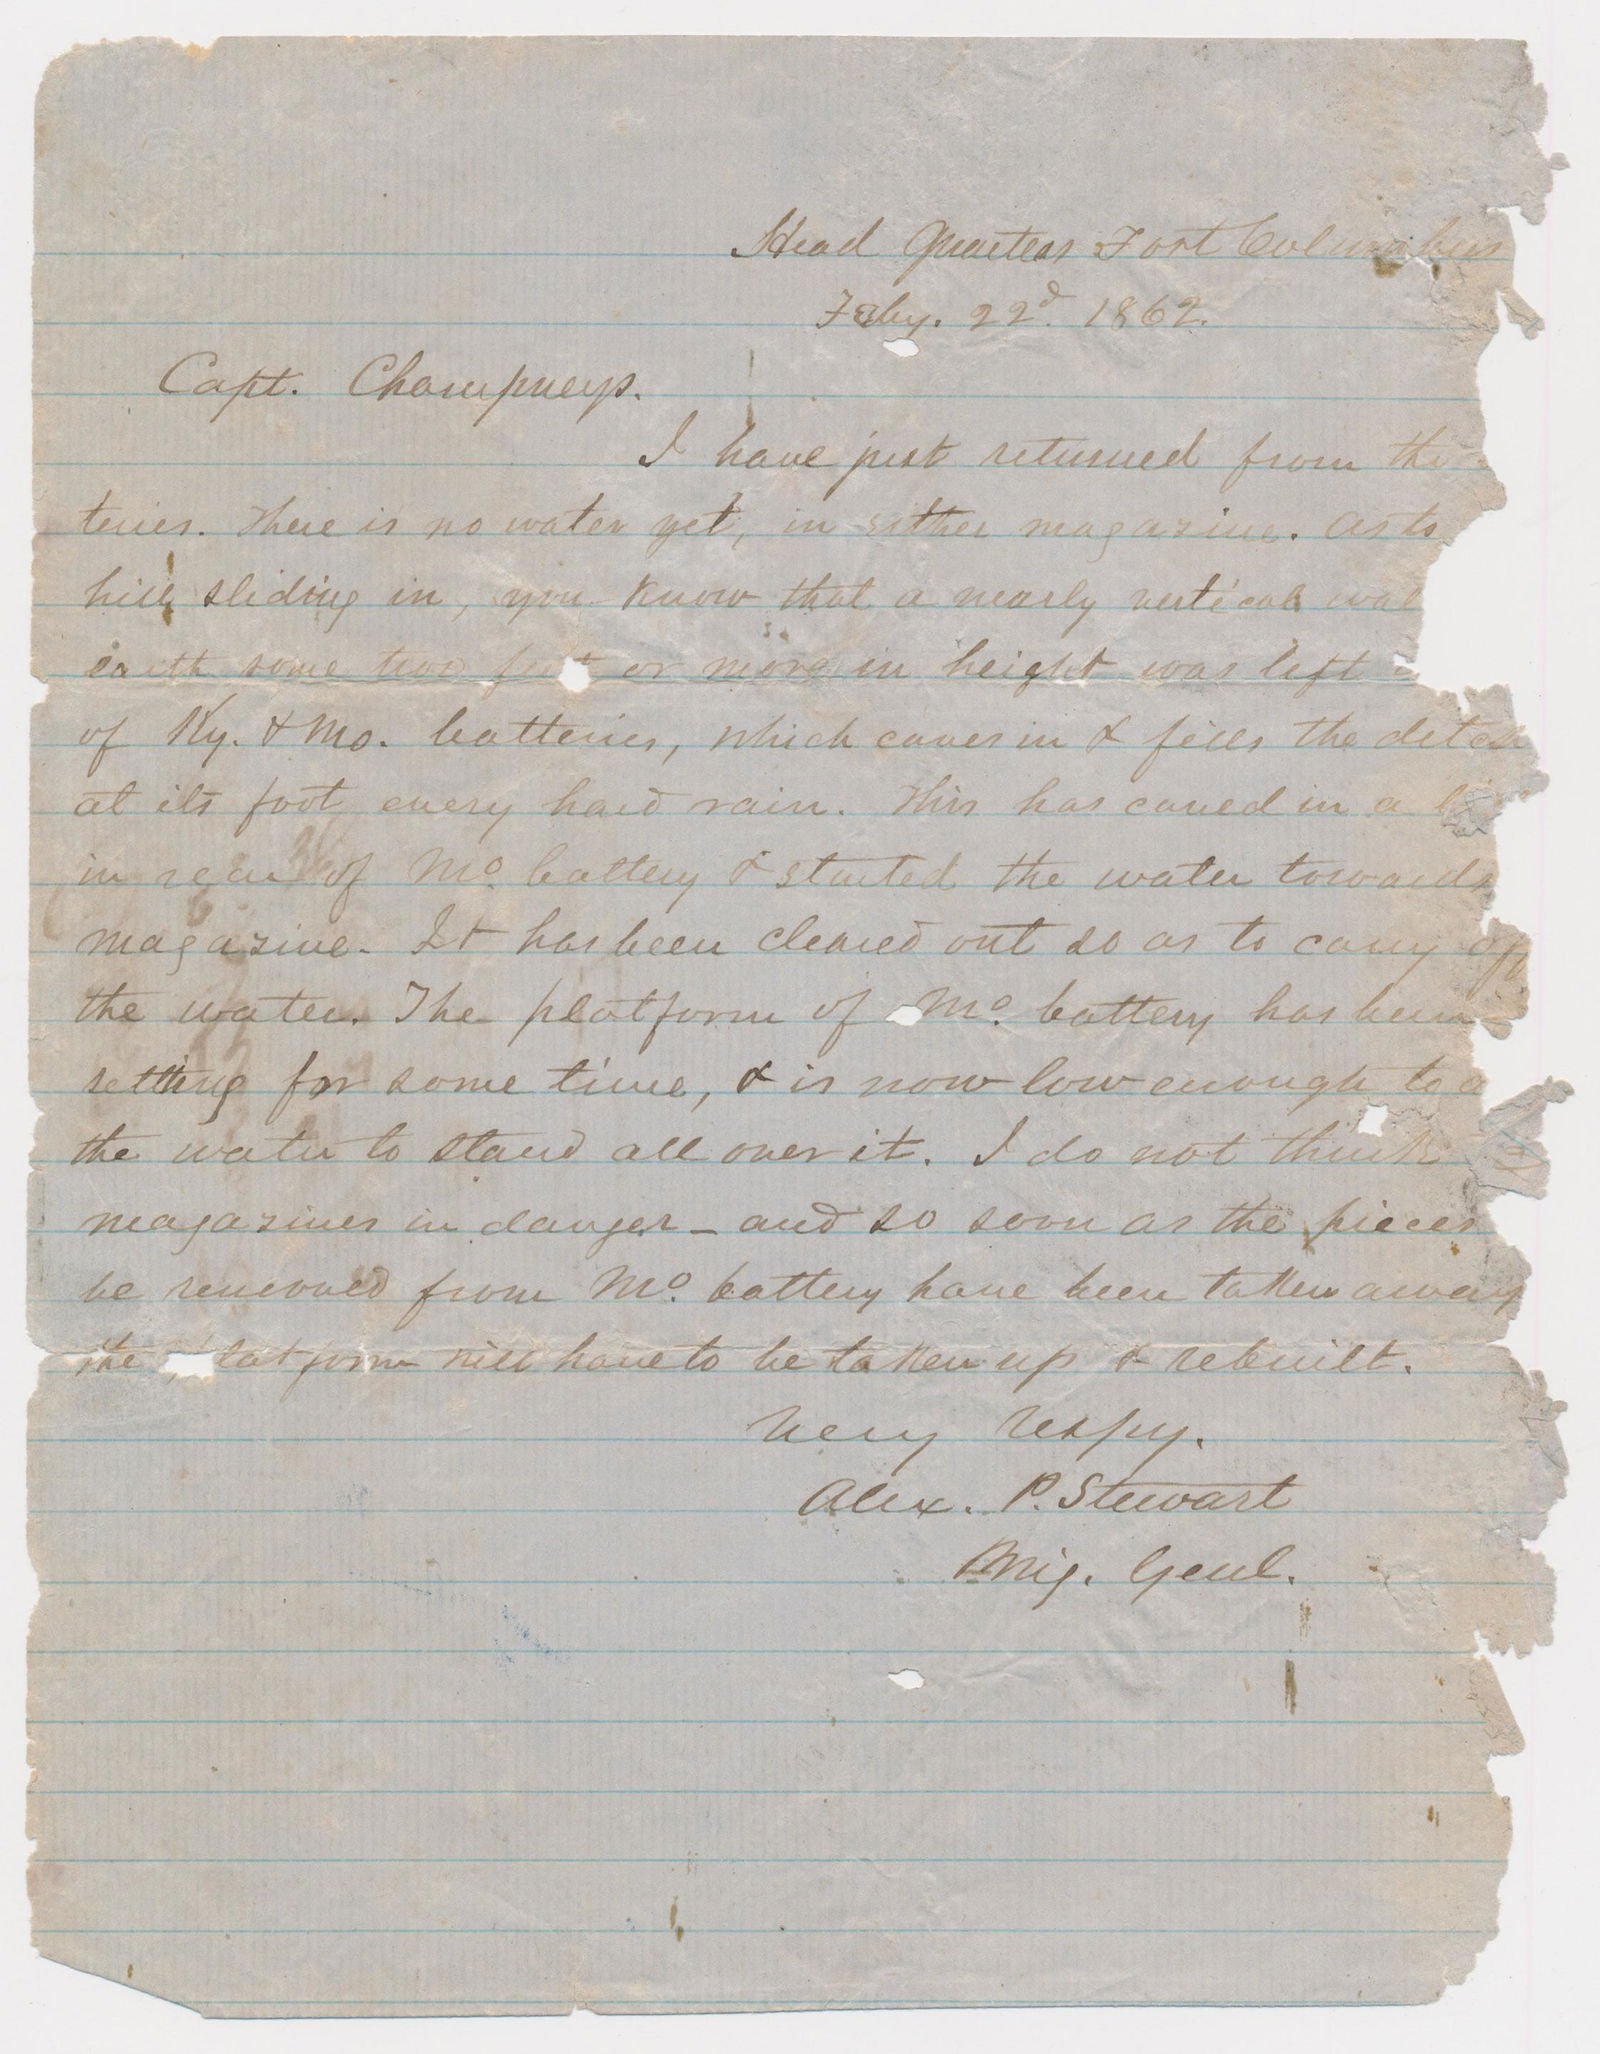 Head Quarters Fort Columbus
Feby. 22d. 1862.
Capt. Champneys.
I have just returned from the
teries. There is no water yet, in either magazine. As to
hill sliding in, you know that a nearly vertical wal
earth some two feet or more in height was left
of Ky. & Mo. batteries, which caves in & fills the ditch
at its foot every hard rain. This has caved in a
in rear of Mo. battery & started the water towards
magazine. It has been cleared out so as to carry off
the water. The platform of Mo. battery has been
settling for some time, & is now low enough to a
the water to stand all over it. I do not think
magazines in danger - and so soon as the pieces
be removed from Mo. battery have been taken away
the latform will have to be taken up & rebuilt.
Very respy.
Alex. P. Stewart
Brig. Genl.